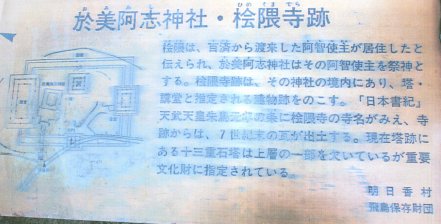 於美阿志神社・桧隈寺跡
桧隈は、百済から渡来した阿智使主が居住したと
伝えられ、於美阿志神社はその阿智使主を祭神と
する。桧隈寺跡は、その神社の境内にあり、塔・
講堂と推定される建物跡をのこす。「日本書紀」
天武天皇朱鳥元年の条に桧隈寺の寺名がみえ、寺
跡からは、7世紀末の瓦が出土する。現在塔跡に
ある十三重石塔は上層の一部を欠いているが重要
文化財に指定されている。
明日香村
飛鳥保存財団